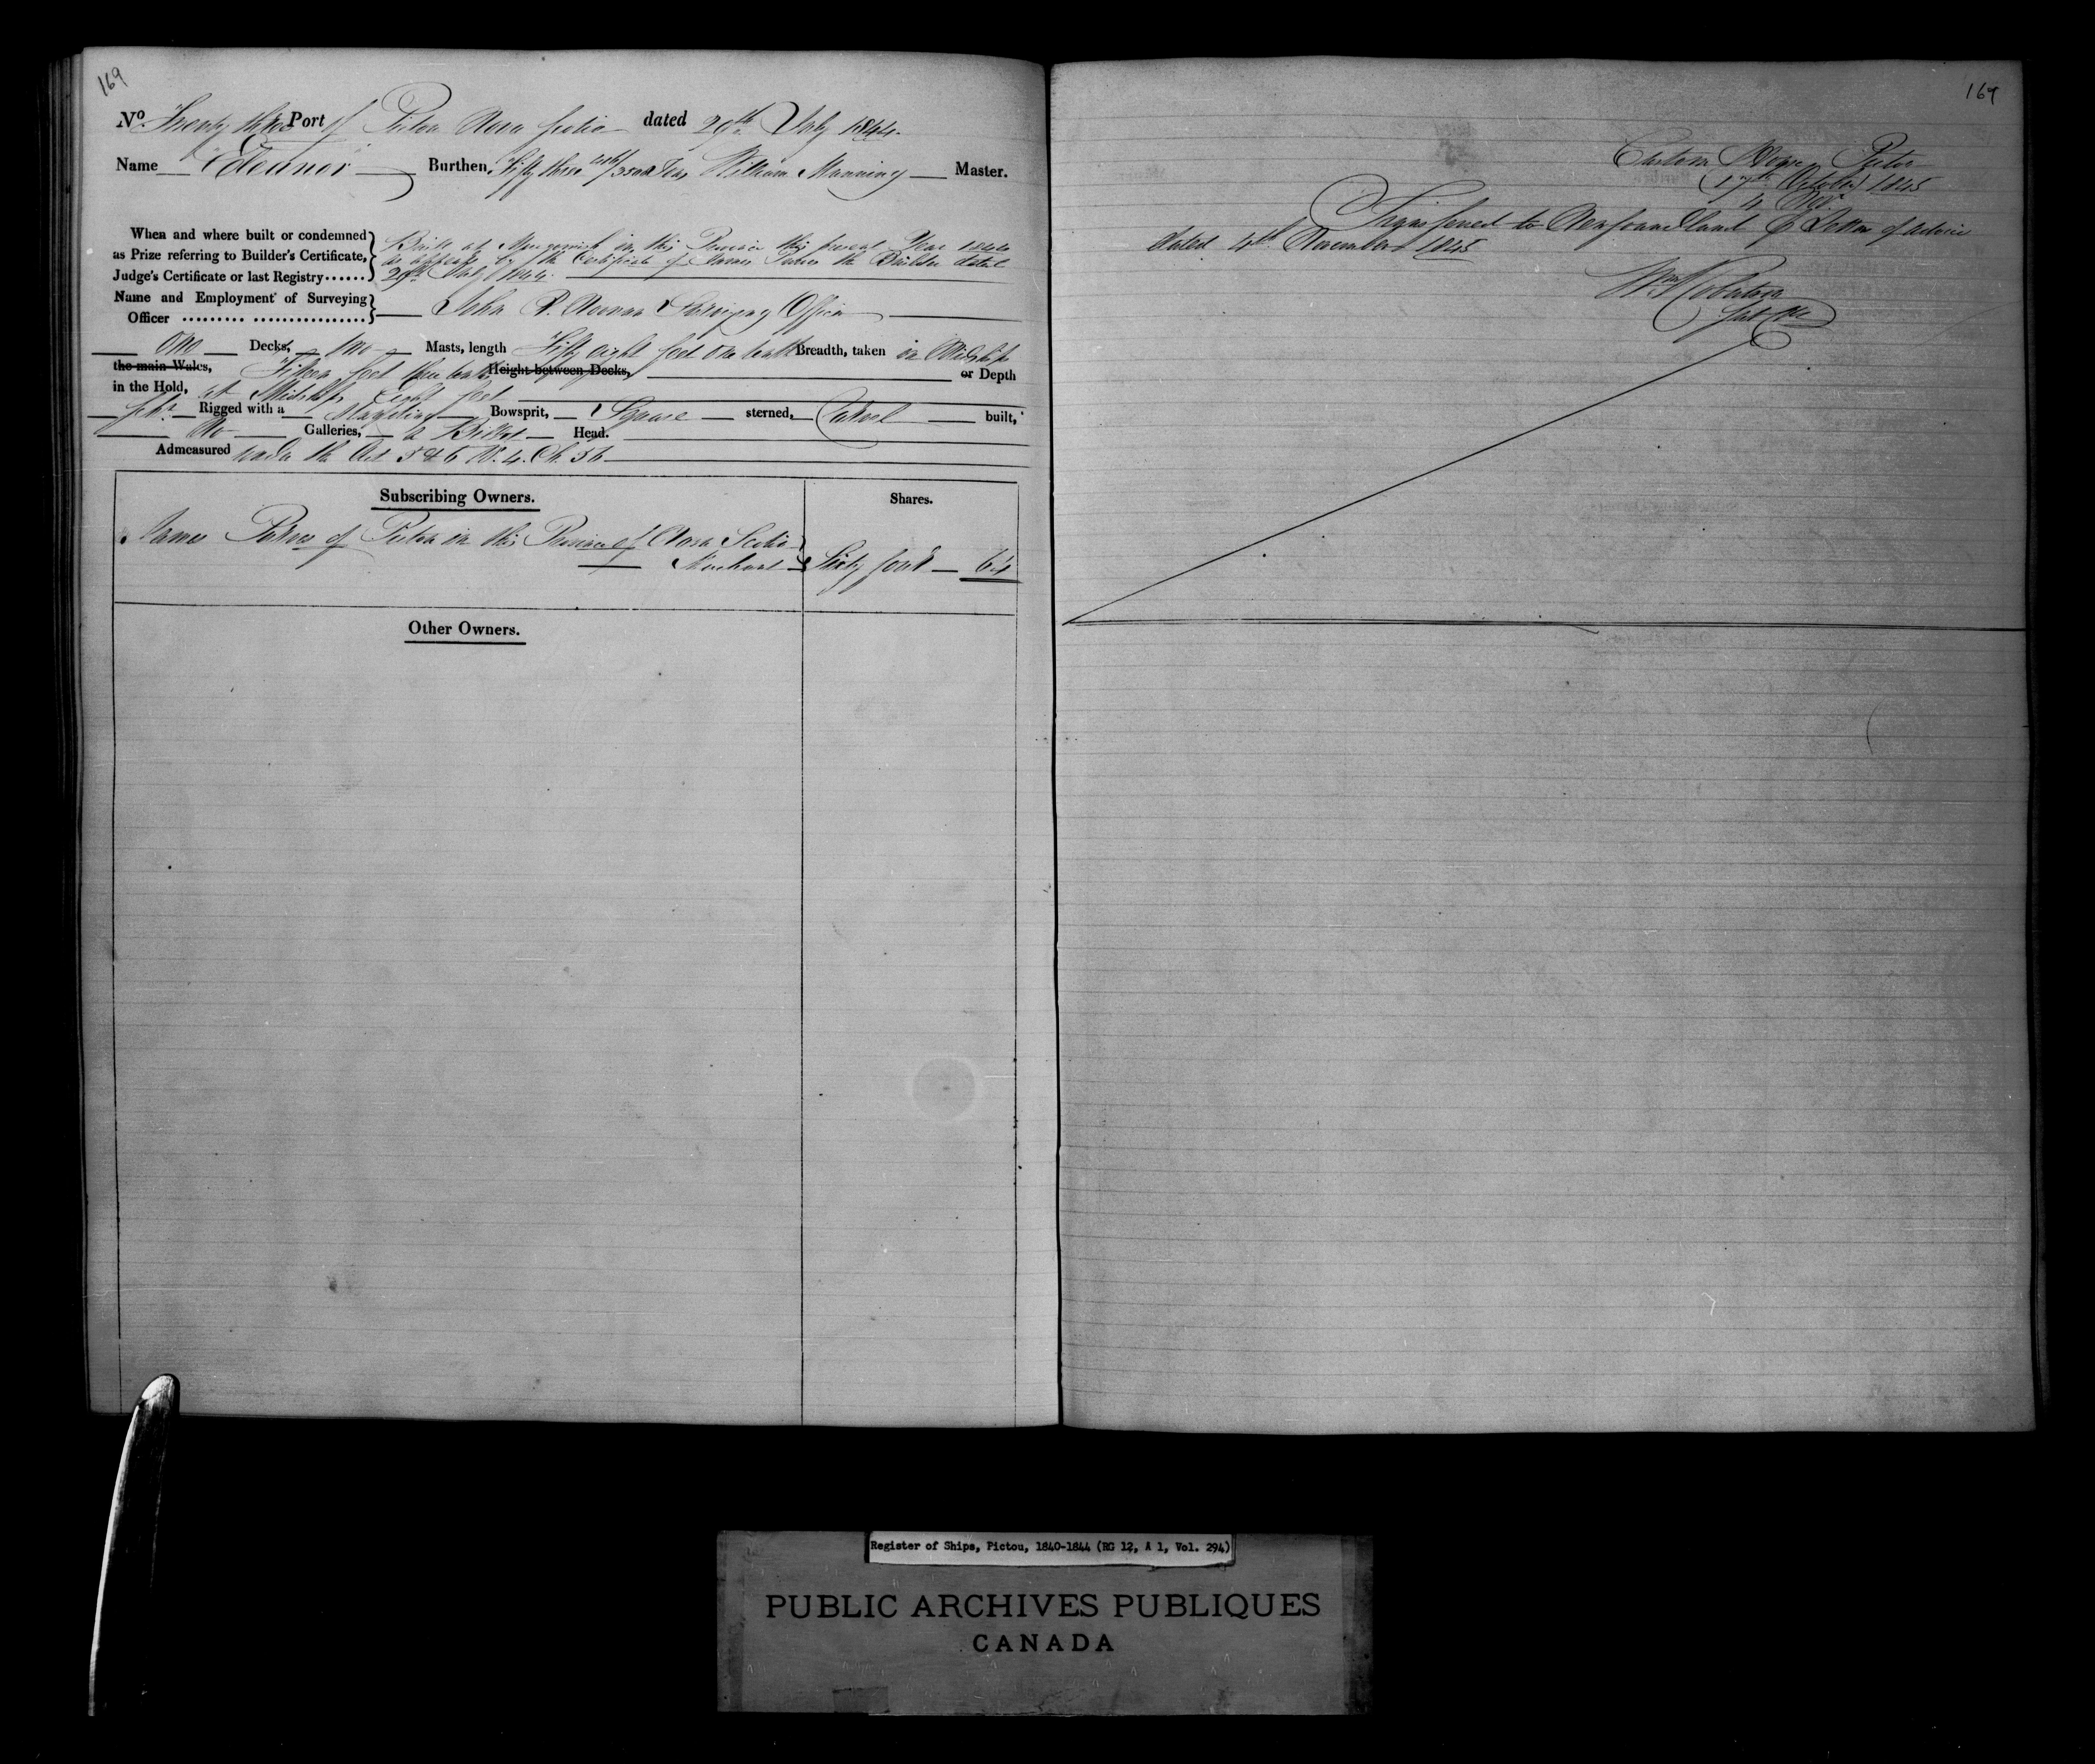 169
No. Twenty three Port of Pictou Nova Scotia dated 29th July 1844.
Name "Eleanor" Burthen, Fifty three /3500 Tons William Manning Master.
When and where built or condemned
as Prize referring to Builder's Certificate,
Judge's Certificate or last Registry......
Built at Merigomish in this Province this present Year 1844
as appears by the Certificate of James Patrick the Builder dated
29th July 1844.
Name and Employment of Surveying
Officer
John D. Noonan Surveying Officer
One Decks, Two Masts, length Fifty eight feet one tenth Breadth, taken in Midships
the main Wales, Fifteen feet three tenths Height between Decks, or Depth
in the Hold, at Midships Eight feet
Schr. Rigged with a Standing Bowsprit, Square sterned, Carvel built,
No Galleries, a Billet Head.
Admeasured under the Act 5 & 6 W. 4. Ch. 56
Subscribing Owners. Shares.
James of Pictou in this Province of Nova Scotia
Merchant Sixty four 64
Other Owners.
169
Custom House Pictou
17th October 1845
4 Nov.
Transferred to Newfoundland P Letter of Advice
dated 4th November 1845
Register of Ships, Pictou, 1840-1844 (RG 12, A 1, Vol. 294)
PUBLIC ARCHIVES PUBLIQUES
CANADA